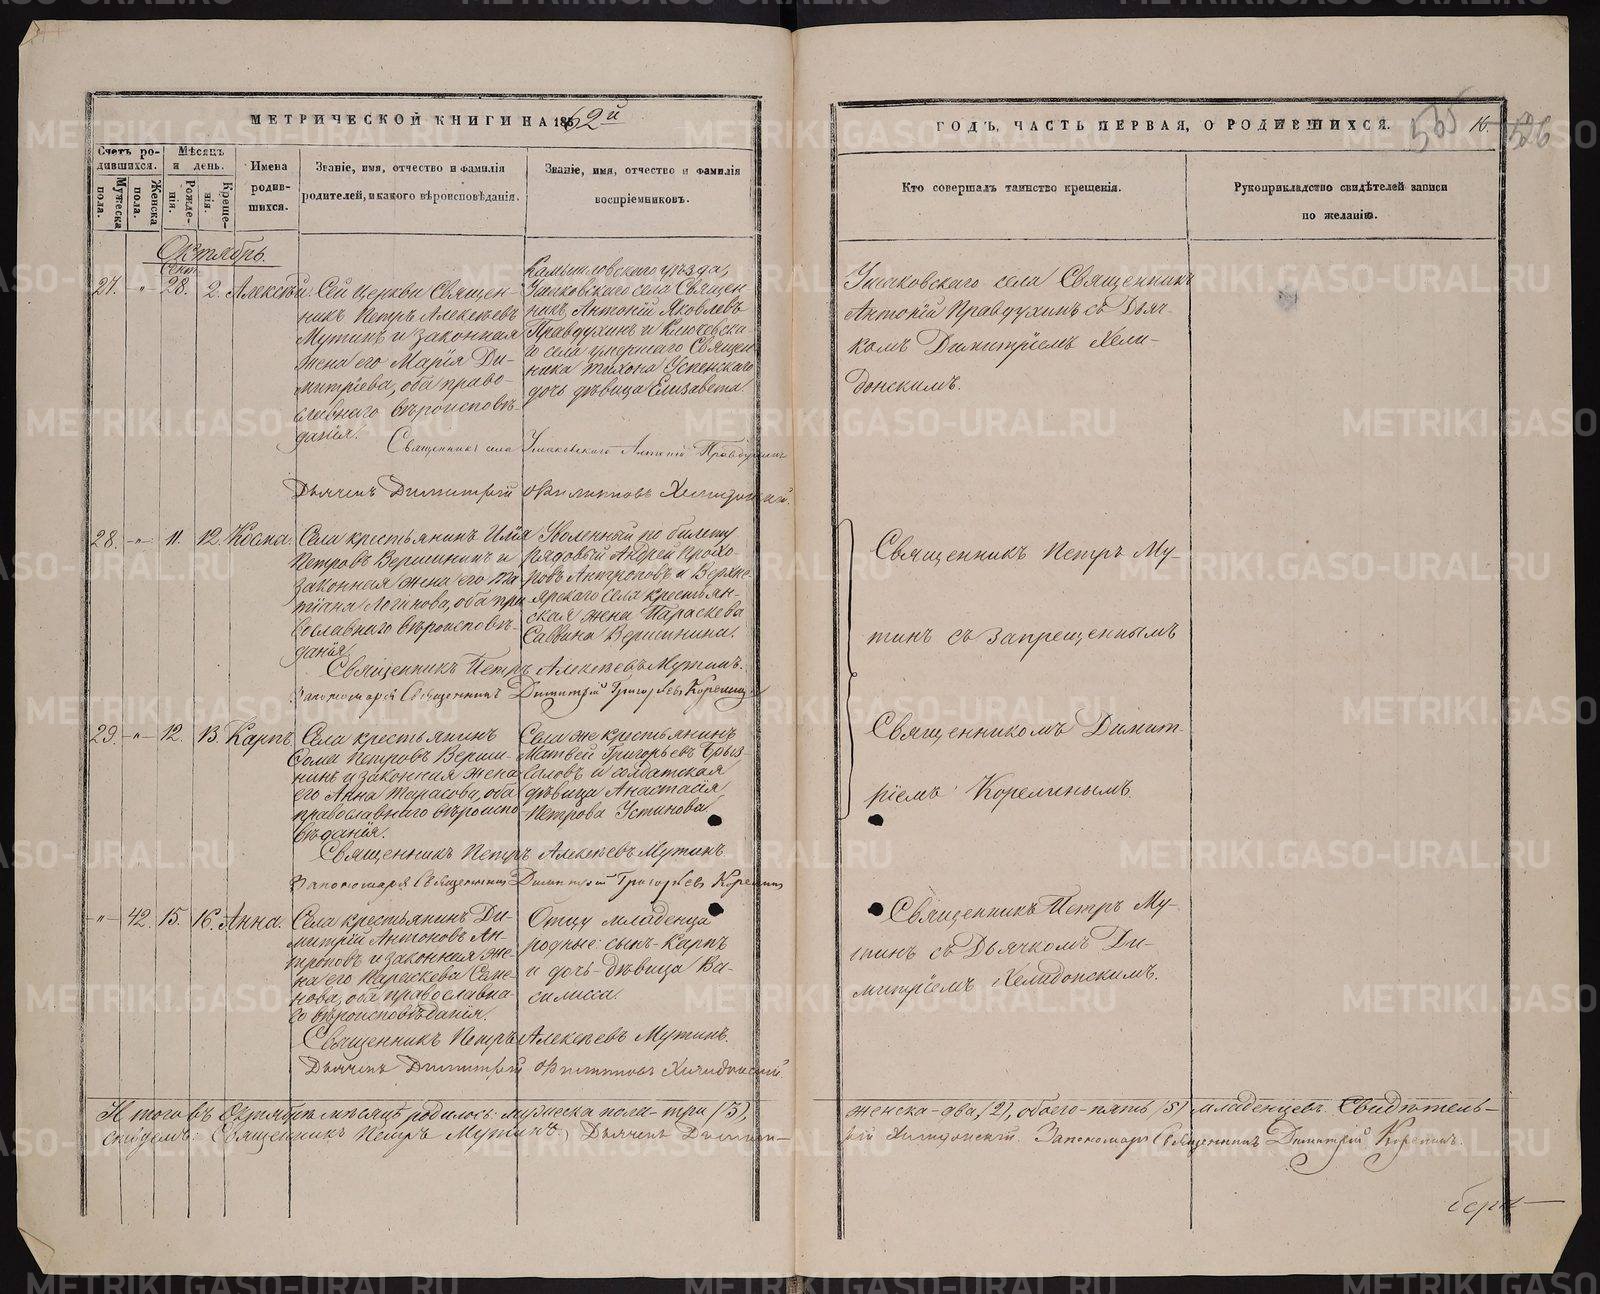 МЕТРИЧЕСКОЙ КНИГИ НА 1862й
ГОДЪ, ЧАСТЬ ПЕРВАЯ, О РОДИВШИХСЯ.
16.
526
Счетъ ро-
дившихся.
Мужеска
пола.
Женска
пола.
Мѣсяцъ
и день.
Рожде-
нія.
Креще-
нія.
Имена
родив-
шихся.
Званіе, имя, отчество и фамилія
родителей, и какого вѣроисповѣданія.
Званіе, имя, отчество и фамилія
воспріемниковъ.
Кто совершалъ таинство крещенія.
Рукоприкладство свидѣтелей записи
по желанію.
Октябрь.
Сент.
27. " 28. 2. Алексѣй.
Сей церкви Священ-
никъ Петръ Алексѣевъ
Мутинъ и законная
жена его Марія Ди-
митріева, оба право-
славнаго вѣроисповѣ-
данія.
Камышловскаго уѣзда,
Ушаковскаго села Священ-
никъ Антоній Яковлевъ
Правдухинъ и Ключевска-
го села умершаго Священ-
ника Тихона Успенскаго
дочь дѣвица Елизавета.
Ушаковскаго села Священникъ
Антоній Правдухинъ съ Дьяч-
комъ Димитріемъ Хели-
донскимъ.
Священникъ села Ушаковскаго Антоній Правдухинъ
Дьячекъ Димитрій Филиповъ Хелидонскій.
28. -"- 11. 12. Косма.
Села крестьянинъ Илія
Петровъ Вершининъ и
законная жена его Та-
тіана Логинова, оба пра-
вославнаго вѣроисповѣ-
данія.
Уволенный по билету
рядовый Андрей Прохо-
ровъ Антроповъ и Верхне-
ярскаго села крестьян-
ская жена Параскева
Саввина Вершинина.
Священникъ Петръ Алексѣевъ Мутинъ.
Запономаря Священникъ Димитрій Григорьевъ Корелинъ
Священникъ Петръ Му-
тинъ съ запрещеннымъ
Священникомъ Димит-
ріемъ Корелинымъ.
29. -"- 12. 13. Карпъ.
Села крестьянинъ
Фома Петровъ Верши-
нинъ и законная жена
его Анна Тарасова, оба
православнаго вѣроиспо-
вѣданія.
Села же крестьянинъ
Матвей Григорьевъ
и солдатская
дѣвица Анастасія
Петрова Устинова
Священникъ Петръ Алексѣевъ Мутинъ.
Запономаря Священникъ Димитрій Григорьевъ Корелинъ
-"- 42. 15. 16. Анна.
Села крестьянинъ Ди-
митрій Антоновъ Ан-
троповъ и законная же-
на его Параскева Семе-
нова, оба православна-
го вѣроисповѣданія.
Отцу младенца
родные: сынъ-Карпъ
и дочь-дѣвица Ва-
силисса.
Священникъ Петръ Му-
тинъ съ Дьячкомъ Ди-
митріемъ Хелидонскимъ.
Священникъ Петръ Алексѣевъ Мутинъ.
Дьячекъ Димитрій Филиповъ Хелидонскій.
Итого въ Октябрѣ мѣсяцѣ родилось: мужеска пола-три (3),
женска-два, (2), обоего-пять (5) младенцевъ. Свидѣтель-
ствуемъ: Священникъ Петръ Мутинъ, Дьячекъ Димит-
рій Хелидонскій. Запономаря Священникъ Димитрій Корелинъ.